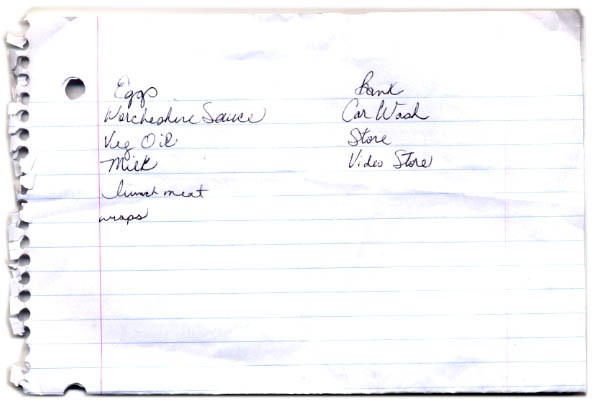 Eggs
Worcheshire Sauce
Veg Oil
Milk
lunch meat
wraps
Bank
Car Wash
Store
Video Store